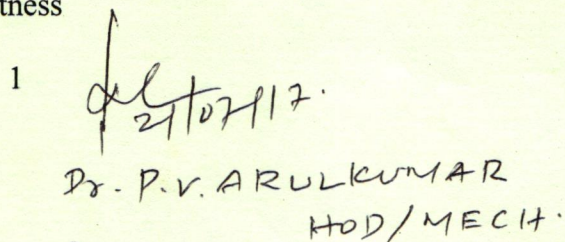 tness
1
21/07/17.
Dr. P.V. ARULKUMAR
HOD/MECH.